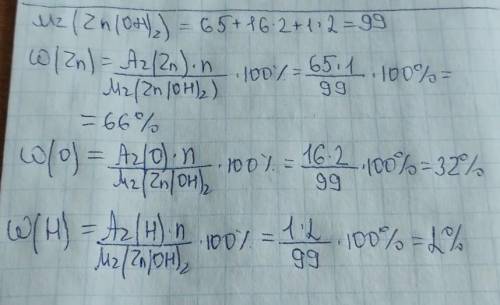 Mr(Zn(OH)₂) = 65+16·2+1·2 = 99
ω(Zn) = Ar(Zn)·n / Mr(Zn(OH)₂) · 100% = 65·1 / 99 · 100% =
= 66%
ω(O) = Ar(O)·n / Mr(Zn(OH)₂ · 100% = 16·2 / 99 · 100% = 32%
ω(H) = Ar(H)·n / Mr(Zn(OH)₂ · 100% = 1·2 / 99 · 100% = 2%